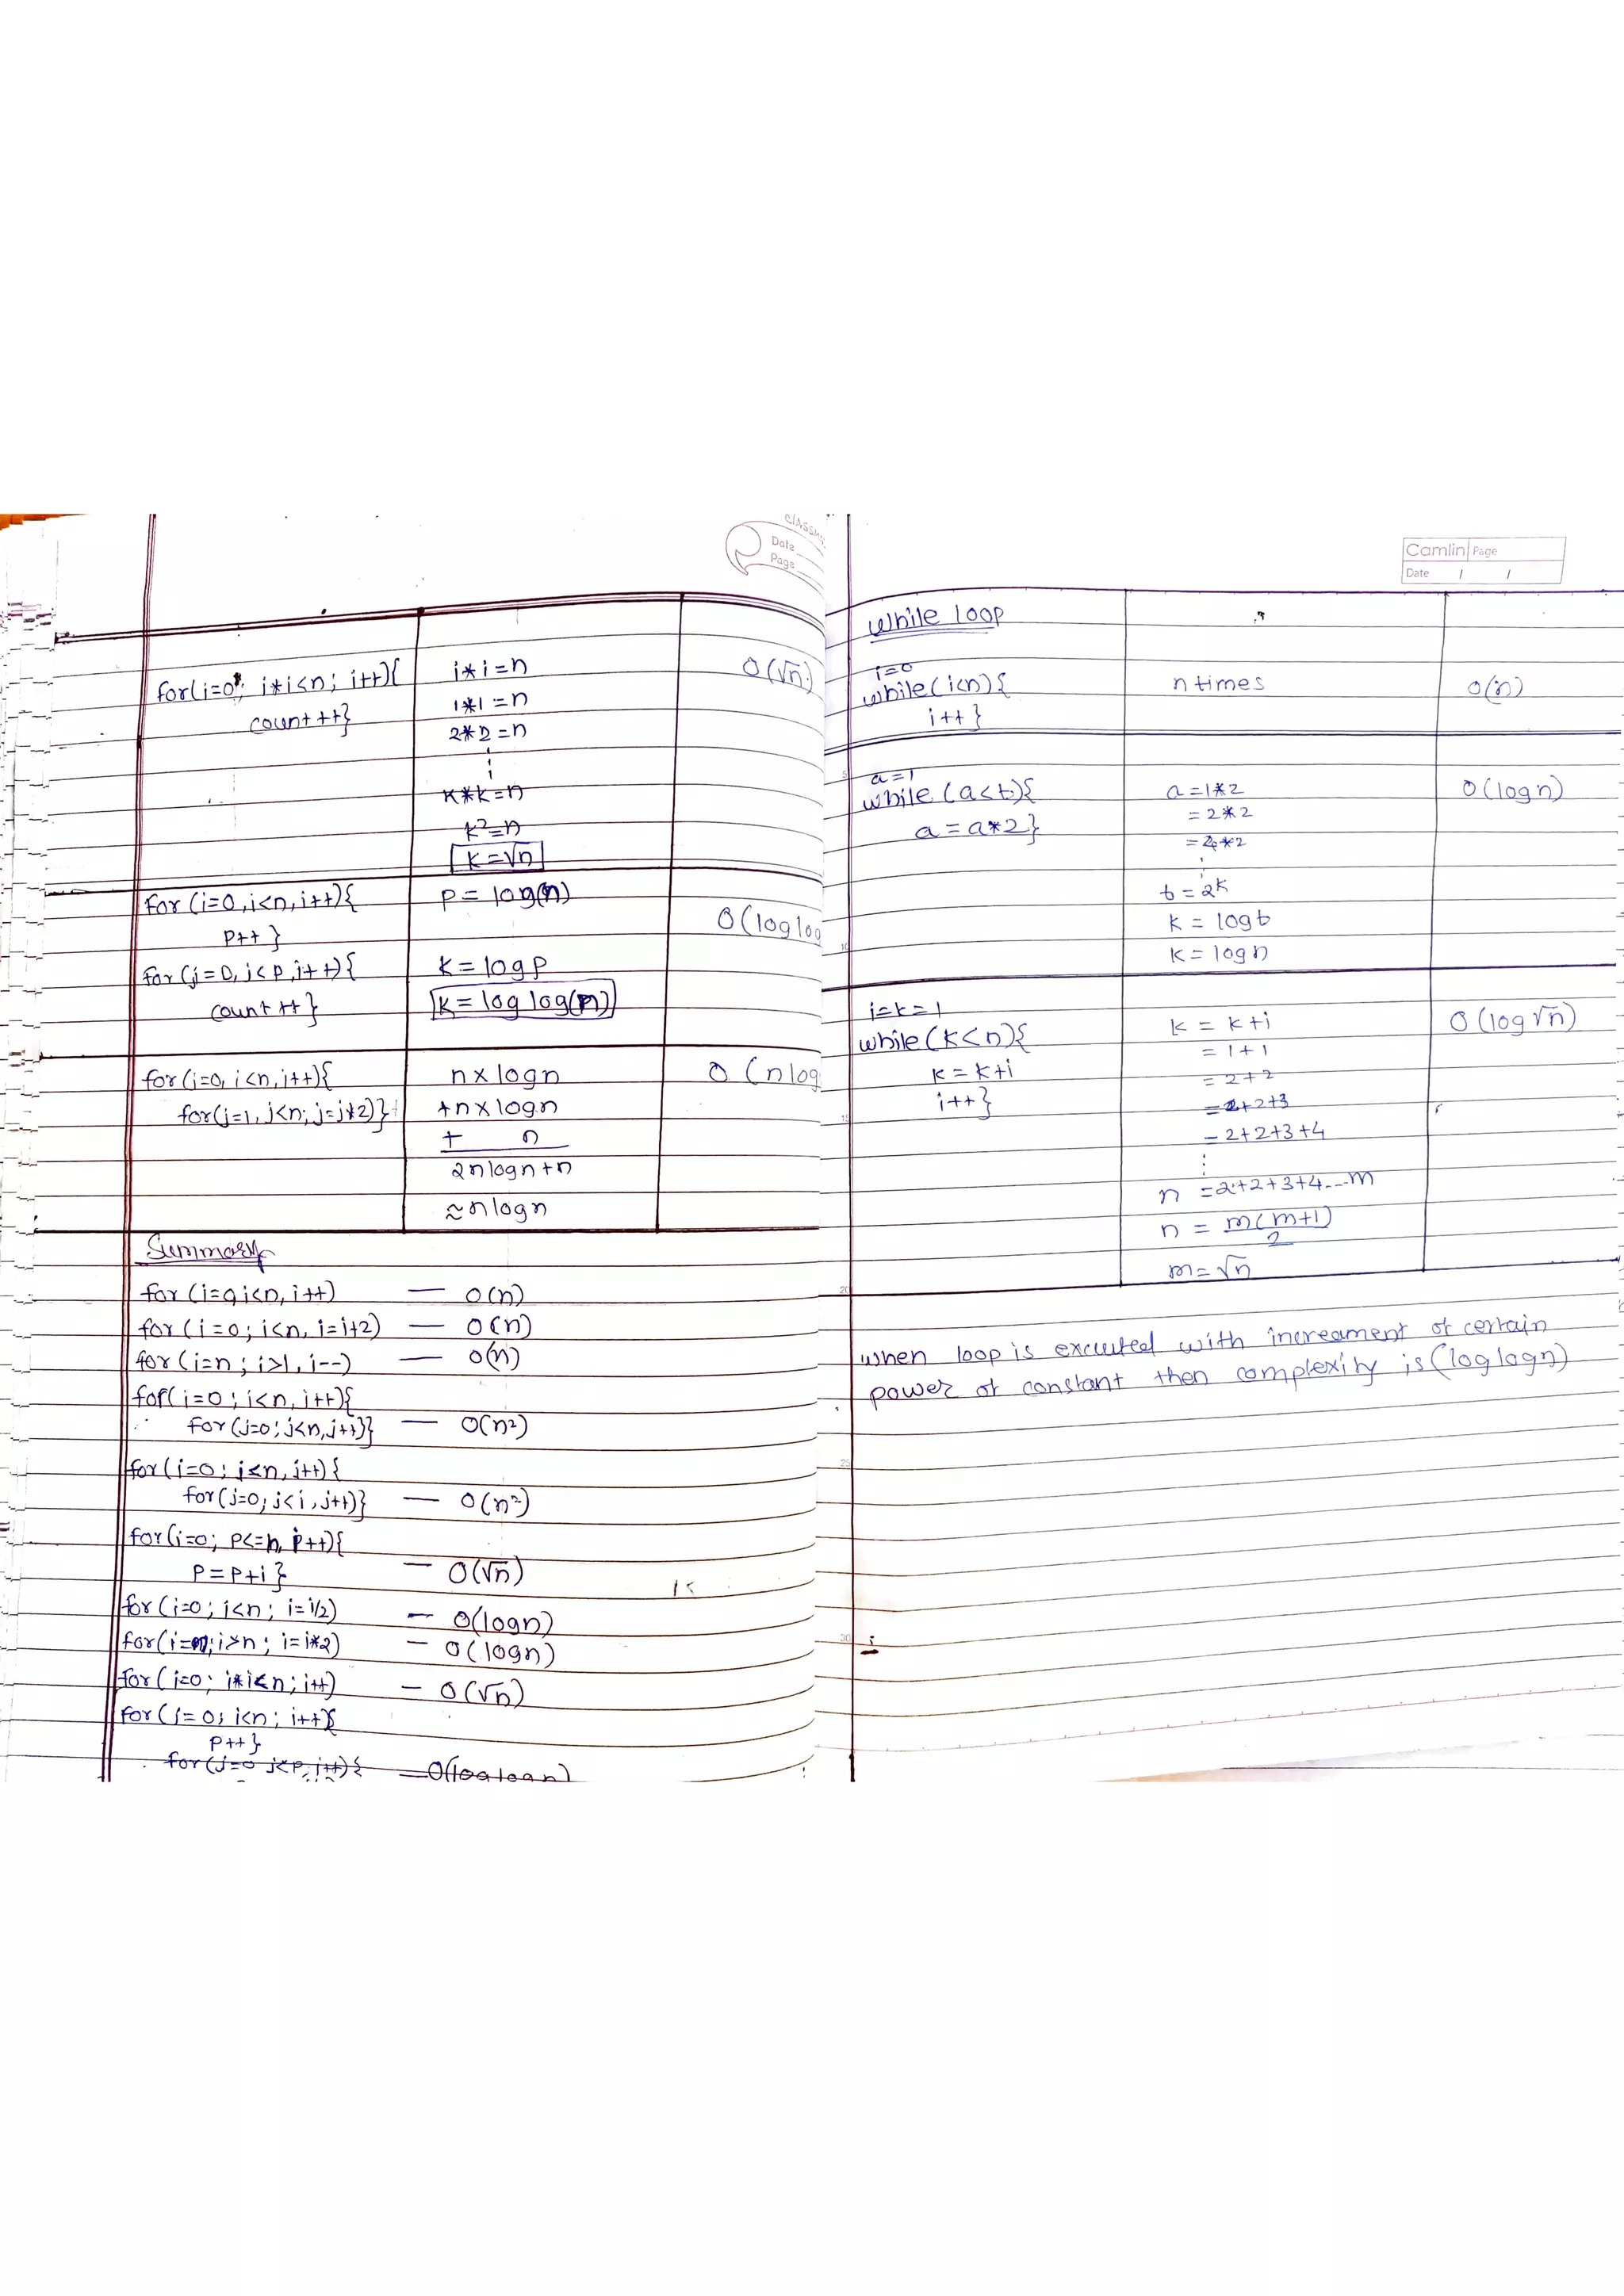 CLASSM
Date
Page
for(i=0; i*i<n; i++){
count++}
i*i=n
1*1=n
2*2=n
K*K=n
K²=n
K=√n
O(√n)
for (i=0,i<n,i++){
P++ }
for (j=0, j<P,j++){
count ++}
P= log(n)
K= logP
K= log log(n)
O(log log
for(i=0, i<n,i++){
for(j=1, j<n; j=j*2)}
n x logn
+n x logn
+ n
2nlogn+n
≈nlogn
O (nlog
Summary
for (i=0 i<n, i++) — O(n)
for (i=0; i<n, i=i+2) — O(n)
for (i=n; i>1, i--) — O(n)
for(i=0; i<n, i++){
for(j=0; j<n,j++)} — O(n²)
for(i=0; i<n, i++){
for(j=0; j<i,j++)} — O(n²)
for(i=0; P<=n, P++){
P=P+i } — O(√n)
for(i=0; i<n; i=i/2) — O(logn)
for(i=n; i>n; i=i*2) — O(logn)
for(i=0; i*i<n; i++) — O(√n)
for(i=0; i<n; i++){
P++}
for(j=0 j<P, j++){ — O(log logn)
Camlin Page
Date / /
while loop
i=0
while(i<n){
i++}
n times
O(n)
a=1
while (a<b){
a = a*2}
a=1*2
= 2*2
= 4*2
b = 2K
K = logb
K= logn
O(logn)
i=k=1
while(K<n){
K = K+i
i++}
K = K+i
= 1+1
= 2+2
= 2+2+3
= 2+2+3+4
n =2+2+3+4---m
n = m(m+1)
2
m=√n
O (log√n)
when loop is excuted with increament of certain
power of constant then complexity is (log logn)
5
10
15
20
25
30